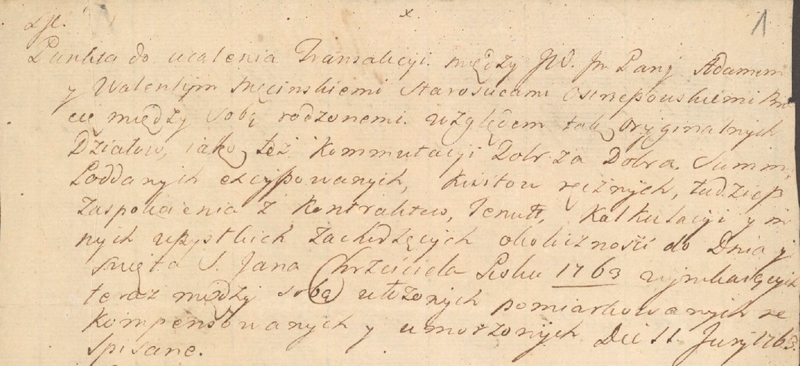 1
Punkta do ucalenia Transakcyi między JW. Jm Panj Adamem
y Walentym Męcinskiemi Starościcami Ostrzeszowskiemi
cią między sobą rodzonemi względem tak oryginalnych
Działów, jako też Kommutacyi Dobr za Dobra. Summ,
Poddanych excypowanych, Kwitow ręcznych, tudziesz
Zaspokoienia z Kontraktow, Tenutt, Kalkulacyi y in
nych wszystkich zachodzących okoliczności do Dnia y
święta S. Jana Chrzściciela Roku 1763 wynikaiących
teraz między sobą ułożonych pomiarkowanych re
kompensowanych y umorzonych Die 11 Junij 1763.
spisane.